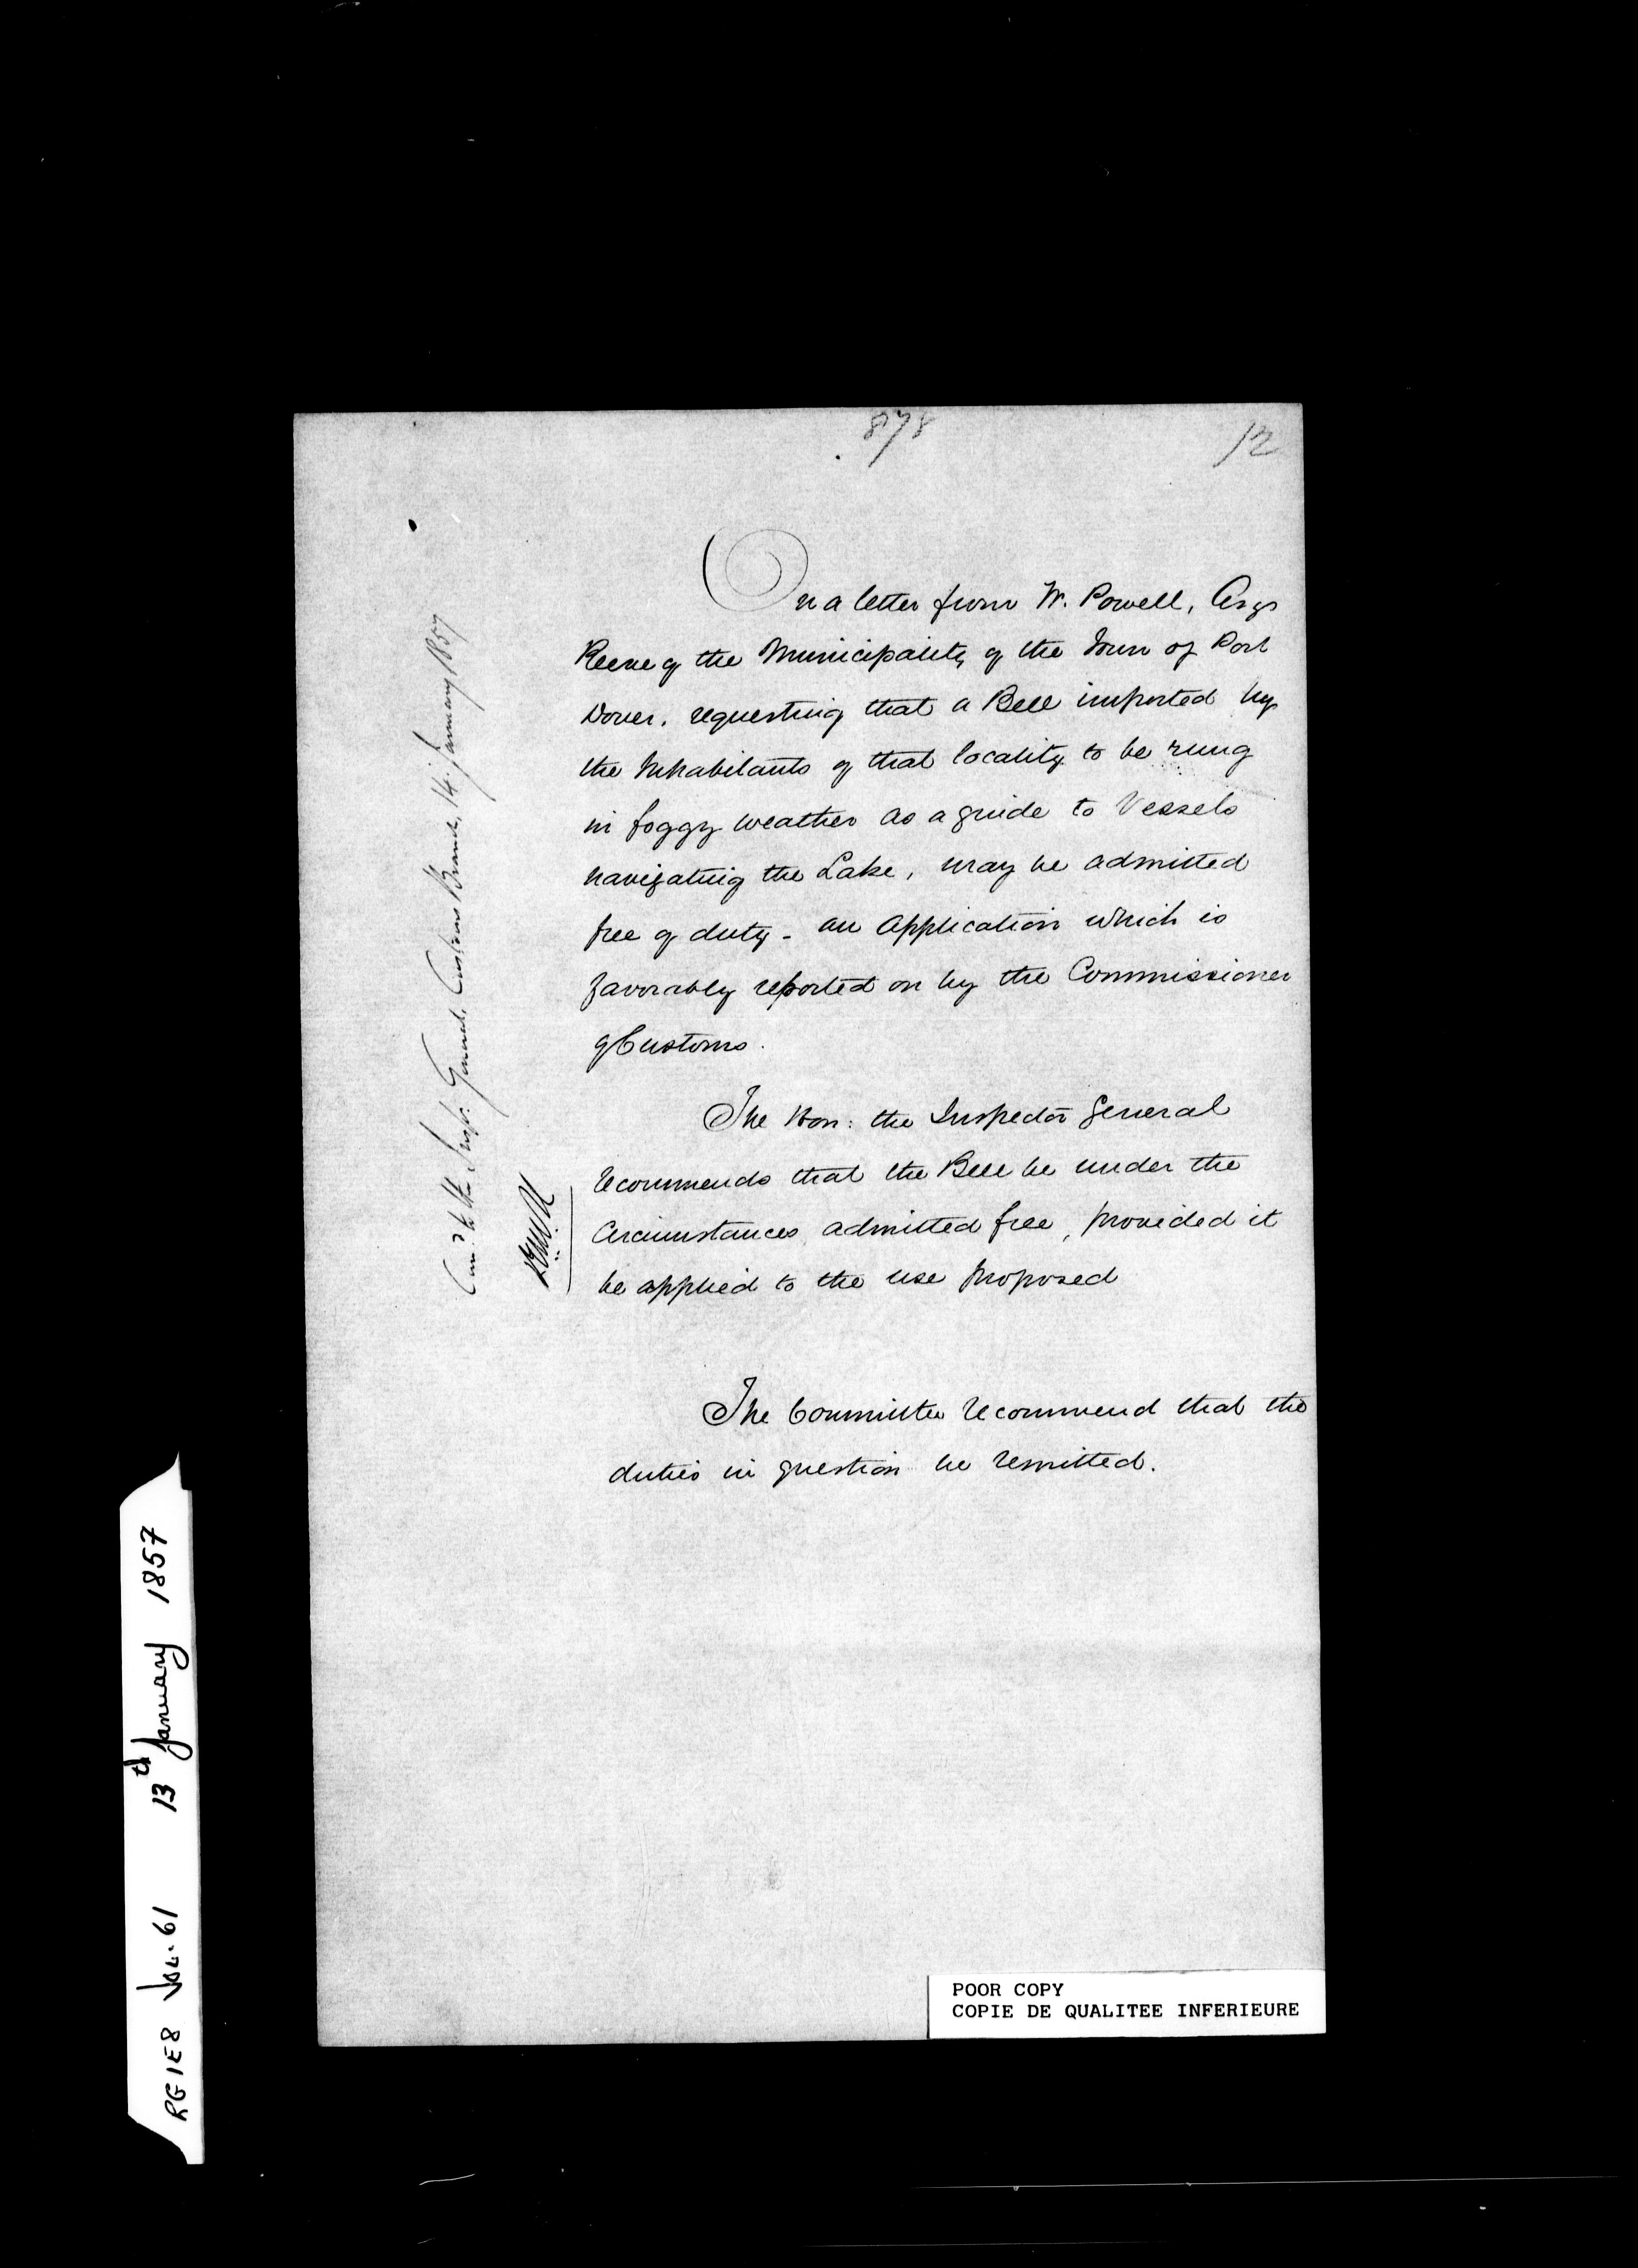 878
12
On a letter from W. Powell, Esqr
Reeve of the Municipality of the Town of Port
Dover, requesting that a Bell imported by
the Inhabitants of that locality to be rung
in foggy weather as a guide to Vessels
navigating the Lake, may be admitted
free of duty - an application which is
favorably reported on by the Commissioner
of Customs.
The Hon: the Inspector General
recommends that the Bell be under the
Circumstances admitted free, provided it
be applied to the use proposed
The Committee recommend that the
duties in question be remitted.
to the Insp: General, Customs Branch, 14 January 1857
RG1E8 Vol. 61 13th January 1857
POOR COPY
COPIE DE QUALITEE INFERIEURE